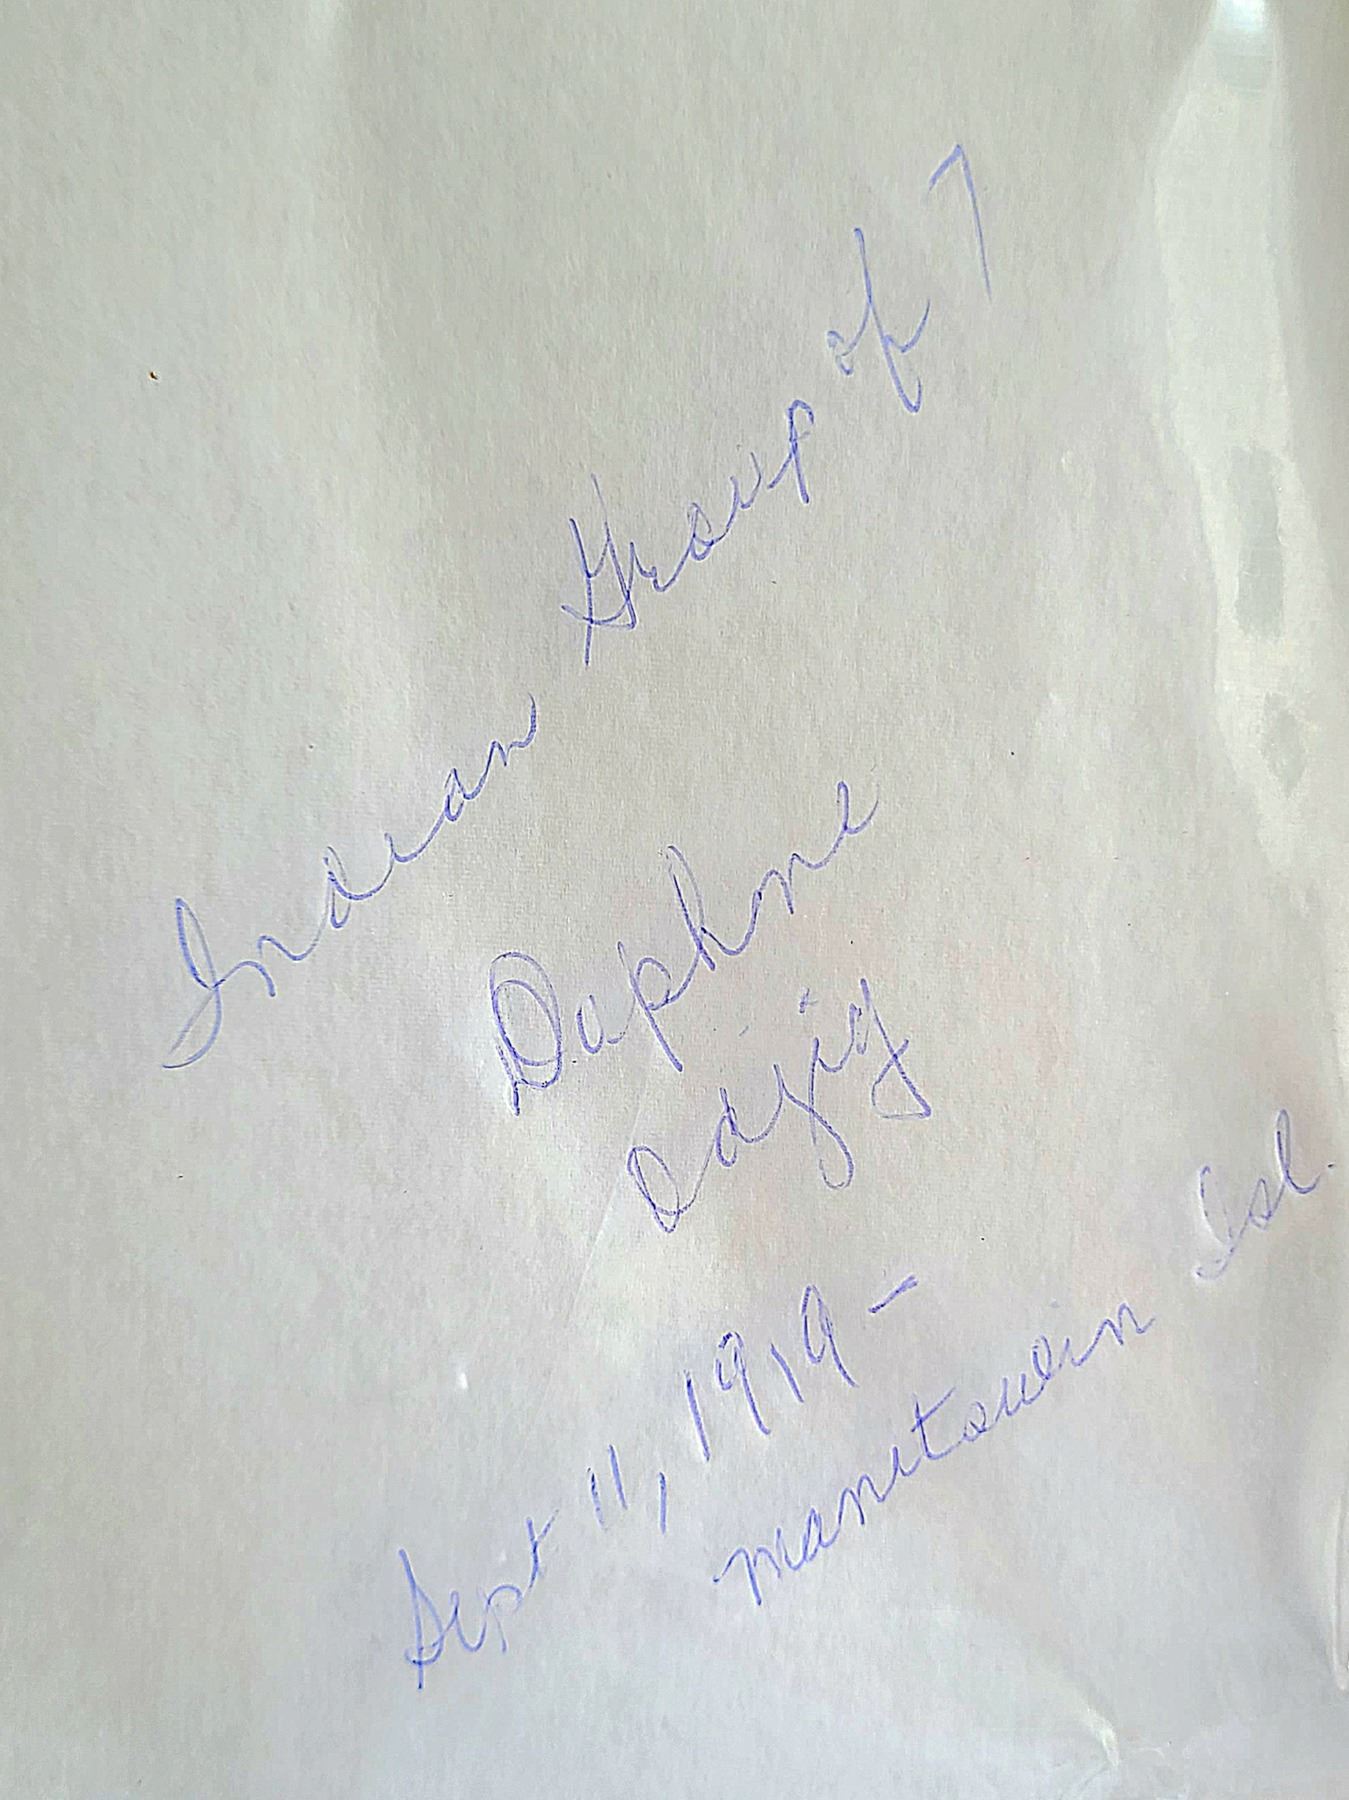 Indian Group of 7
Daphne
Odjig
Sept 11, 1919 -
manitoulin Isl.